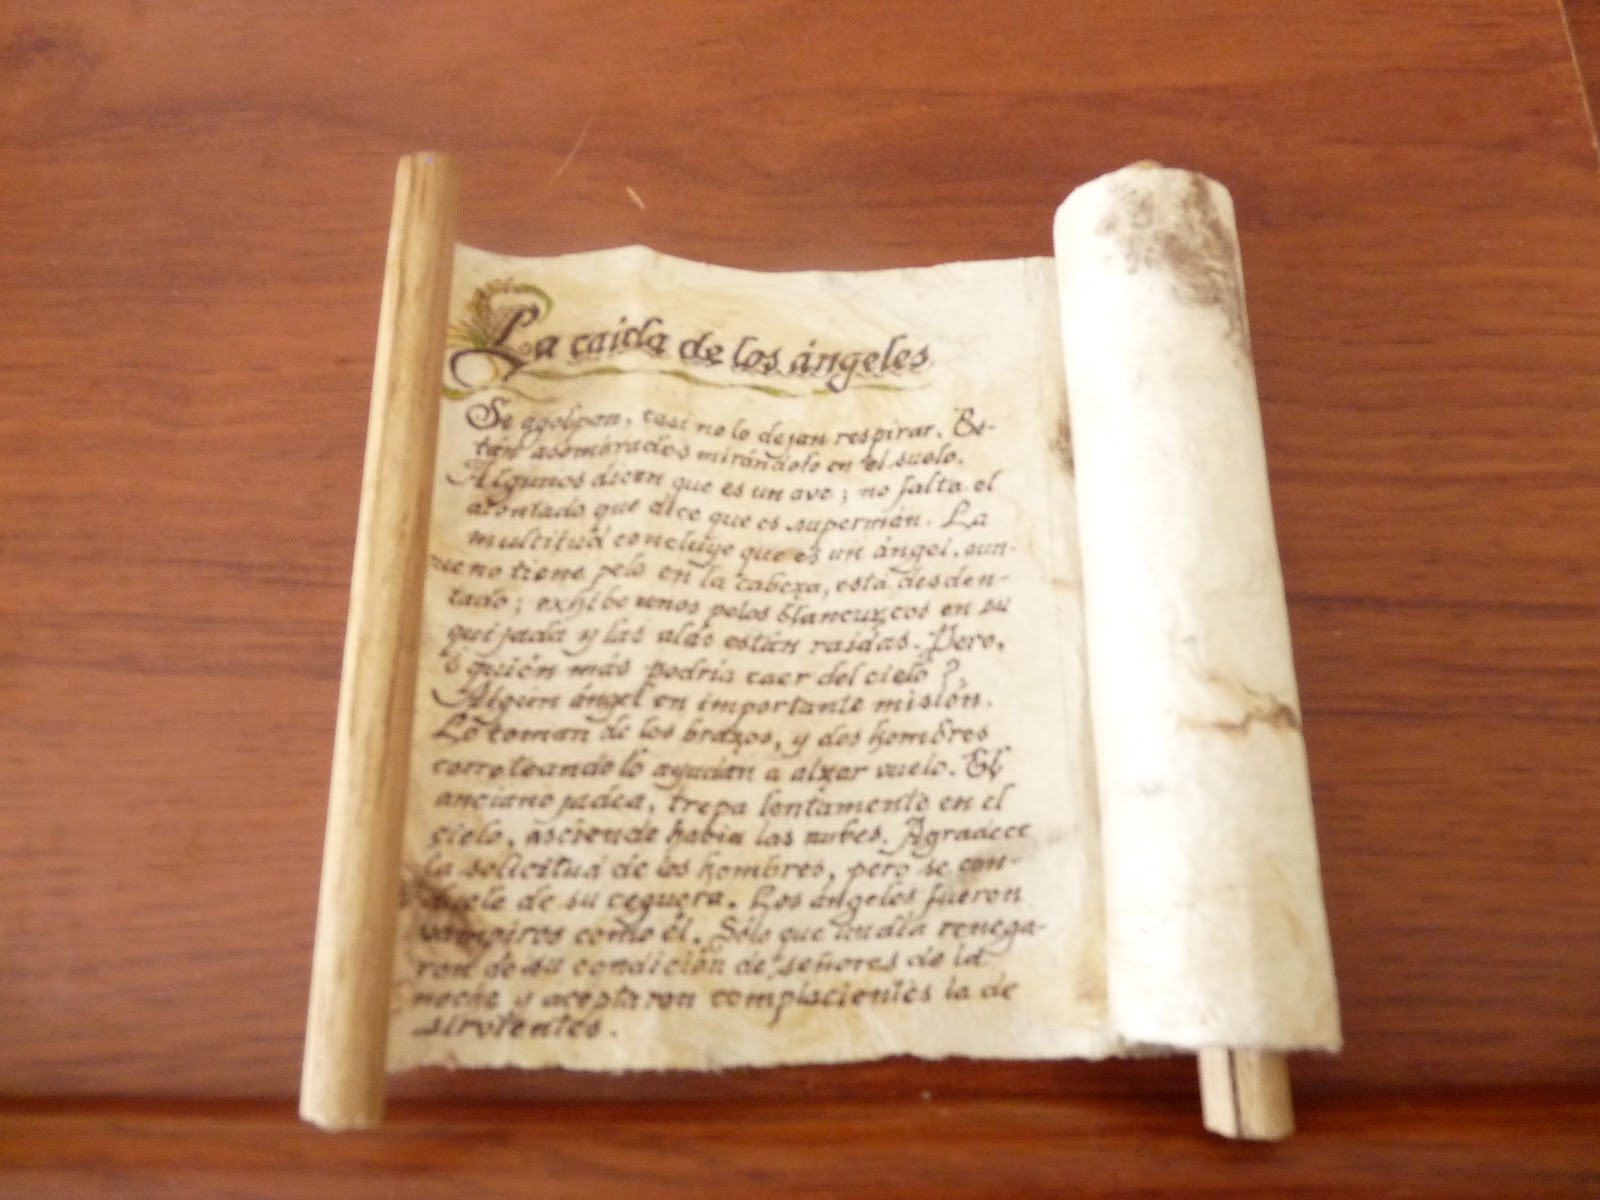 La caida de los ángeles
Se agolpan, casi no lo dejan respirar. Es-
tán asombrados mirándolo en el suelo.
Algunos dicen que es un ave; no falta el
atontado que dice que es superman. La
multitud concluye que es un ángel, aun-
que no tiene pelo en la cabeza, está desden-
tado; exhibe unos pelos blancuzcos en su
quijada y las alas están raidas. Pero,
¿quién más podría caer del cielo?,
Algún ángel en importante misión.
Lo toman de los brazos, y dos hombres
correteando lo ayudan a alzar vuelo. El
anciano jadea, trepa lentamente en el
cielo, asciende hacia las nubes. Agradece
la solicitud de los hombres, pero se con-
duele de su ceguera. Los ángeles fueron
vampiros como él. Sólo que un día renega-
ron de su condición de señores de la
noche y aceptaron complacientes la de
sirvientes.